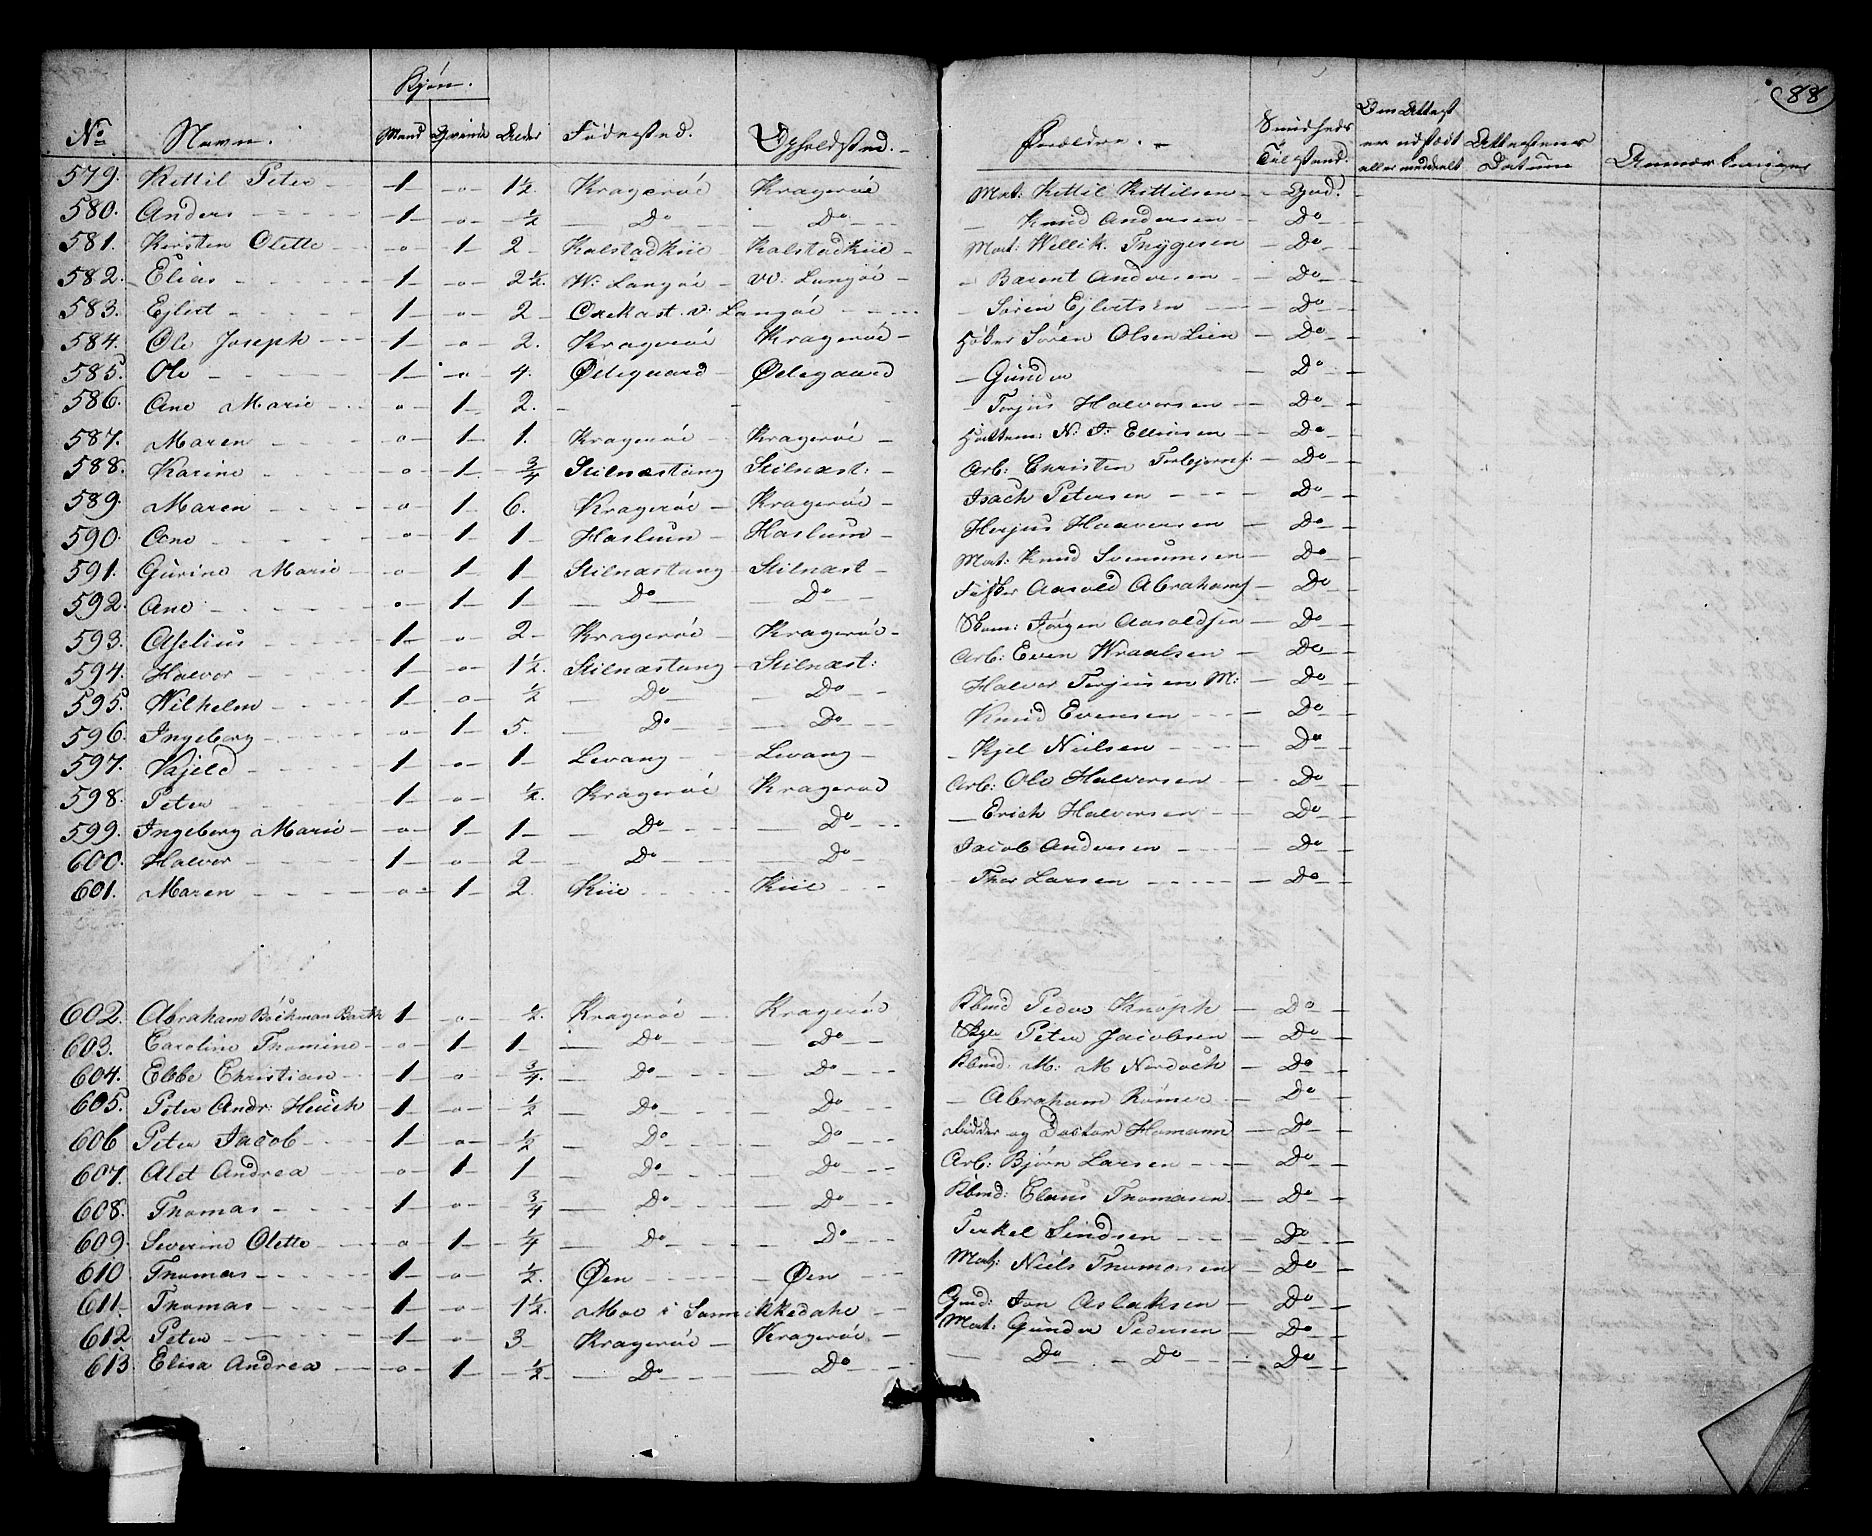 88
Kjøn.
No Navn. Mand Qvinde Alder Fødested. Opholdsted. Forældre. Sundheds Tilstand. Om Attest er udstædt eller meddelt Attestens Datum Anmærkninger
579. Kittil Peter 1 o 1½. Kragerøe Kragerøe Mat: Kittil Kittilsen God.
580. Anders 1 o ½ Do Do Knud Andersen Do
581. Kirsten Olette o 1 2 Kalstadkiie Kalstadkiie Mat: Willik Trygesen Do
582. Elias 1 o 2½. W: Langøe W: Langøe Barent Andersen Do
583. Ejlert 1 o 2 Oxekast v: Langøe Søren Ejlertsen Do
584. Ole Joseph 1 o 2. Kragerøe Kragerøe Høker Søren Olsen Lien Do
585. Ole 1 o 4. Ødegaard Ødegaard Gunder Do
586. Ane Marie o 1 2. Terjus Halvorsen Do
587. Maren o 1 1. Kragerøe Kragerøe N: J: Ellingsen Do
588. Karine o 1 ¾ Stilnæstang Stilnæst: Arb: Christen Torbjørns: Do
589. Maren o 1 6. Kragerøe Kragerøe Isach Petersen Do
590. Ane o 1 1 Haslum Haslum Herjus Haavorsen Do
591. Gurine Marie o 1 1 Stilnæstang Stilnæst Mat: Knud Do
592. Ane o 1 1 Do Do Fisker Aasold Abrahams Do
593. Aselius 1 o 2 Kragerøe Kragerøe Jørgen Aasoldsen Do
594. Halvor 1 o 1½. Stilnæstang Stilnæst: Arb: Even Wraalsen Do
595. Wilhelm 1 o ½ Do Do Halvor Terjusen M: Do
596. Ingeborg o 1 5. Do Do Knud Evensen Do
597. Kajeld 1 o 1 Levang Levang Kjel Nielsen Do
598. Peter 1 o ½. Kragerøe Kragerøe Arb: Ole Halversen Do
599. Ingeborg Marie o 1 1 Do Do Erich Halversen Do
600. Halvor 1 o 2 Do Do Jacob Andersen Do
601. Maren o 1 2. Kiie Kiie Thor Larsen Do
602. Abraham Bøckman Barth 1 o Kragerøe Kragerøe Kbmd Peder Knoph Do
603. Caroline Thomine o 1 1 Do Do Peter Jacobsen Do
604. Ebbe Christian 1 o ¾. Do Do Kbmd: M: M Nordoch Do
605. Peter Andr: Heuch 1 o ½ Do Do Abraham Rømer Do
606 Peter Jacob 1 o ½ Do Do Ridder og Doctor Homann Do
607. Alet Andrea o 1 1 Do Do Arb: Bjørn Larsen Do
608. Thomas 1 o ¾ Do Do Kbmd: Claus Thomasen Do
609. Severine Olette o 1 ¼ Do Do Terkel Sendsen Do
610 Thomas 1 o ½. Øen Øen Mat: Niels Thomassen Do
611. Thomas 1 o 1½. Moe i Sannikkedahl Gmd: Jon Aslaksen Do
612 Peter 1 o 3 Kragerøe Kragerøe Mat: Gunder Pedersen Do
613 Elisa Andrea o 1 ½ Do Do Do Do Do